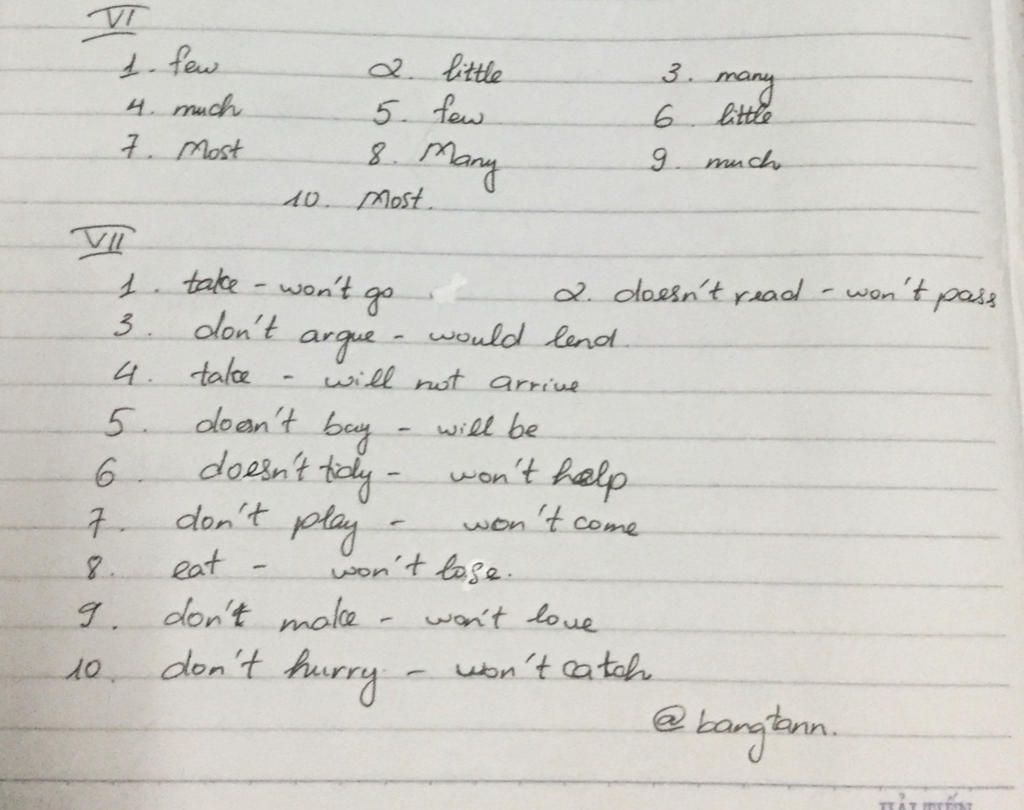 VI
1. few 2. little 3. many
4. much 5. few 6 little
7. Most 8. Many 9. much
10. Most.
VII
1. take - won't go 2. doesn't read - won't pass
3. don't argue - would lend.
4. take - will not arrive
5. doesn't buy - will be
6 doesn't tidy - won't help
7. don't play - won't come
8. eat - won't lose.
9. don't make - won't love
10. don't hurry - won't catch
@bangtann.